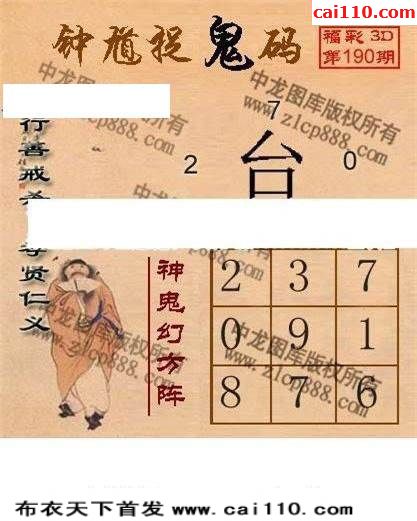 cai110.com
钟馗捉鬼码
福彩3D
第190期
中龙图库版权所有
www.zlcp888.com
7
2
台
0
行善戒杀
孝贤仁义
神鬼幻方阵
2 3 7
0 9 1
8 7 6
中龙图库版权所有
www.zlcp888.com
布衣天下首发 www.cai110.com